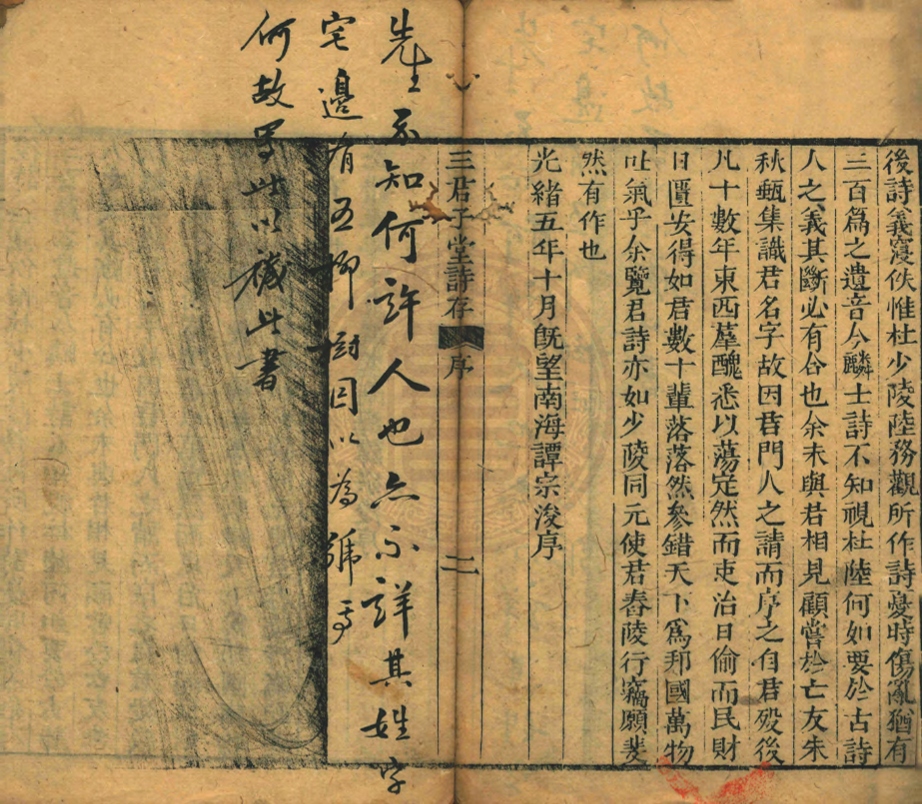 後詩義寖佚惟杜少陵陸務觀所作詩憂時傷亂猶有
三百篇之遺音今麟士詩不知視杜陸何如要於古詩
人之義其斷必有合也余未與君相見顧嘗於亡友朱
秋甀集識君名字故因君門人之請而序之自君歿後
凡十數年東西羣醜悉以蕩定然而吏治日偷而民財
日匱安得如君數十輩落落然參錯天下爲邦國萬物
吐氣乎余覽君詩亦如少陵同元使君舂陵行竊願斐
然有作也
光緒五年十月旣望南海譚宗浚序
三君子堂詩存 序 二
先生不知何許人也亦不詳其姓字
宅邊有五柳樹因以為號焉
何故寫此以穢此書